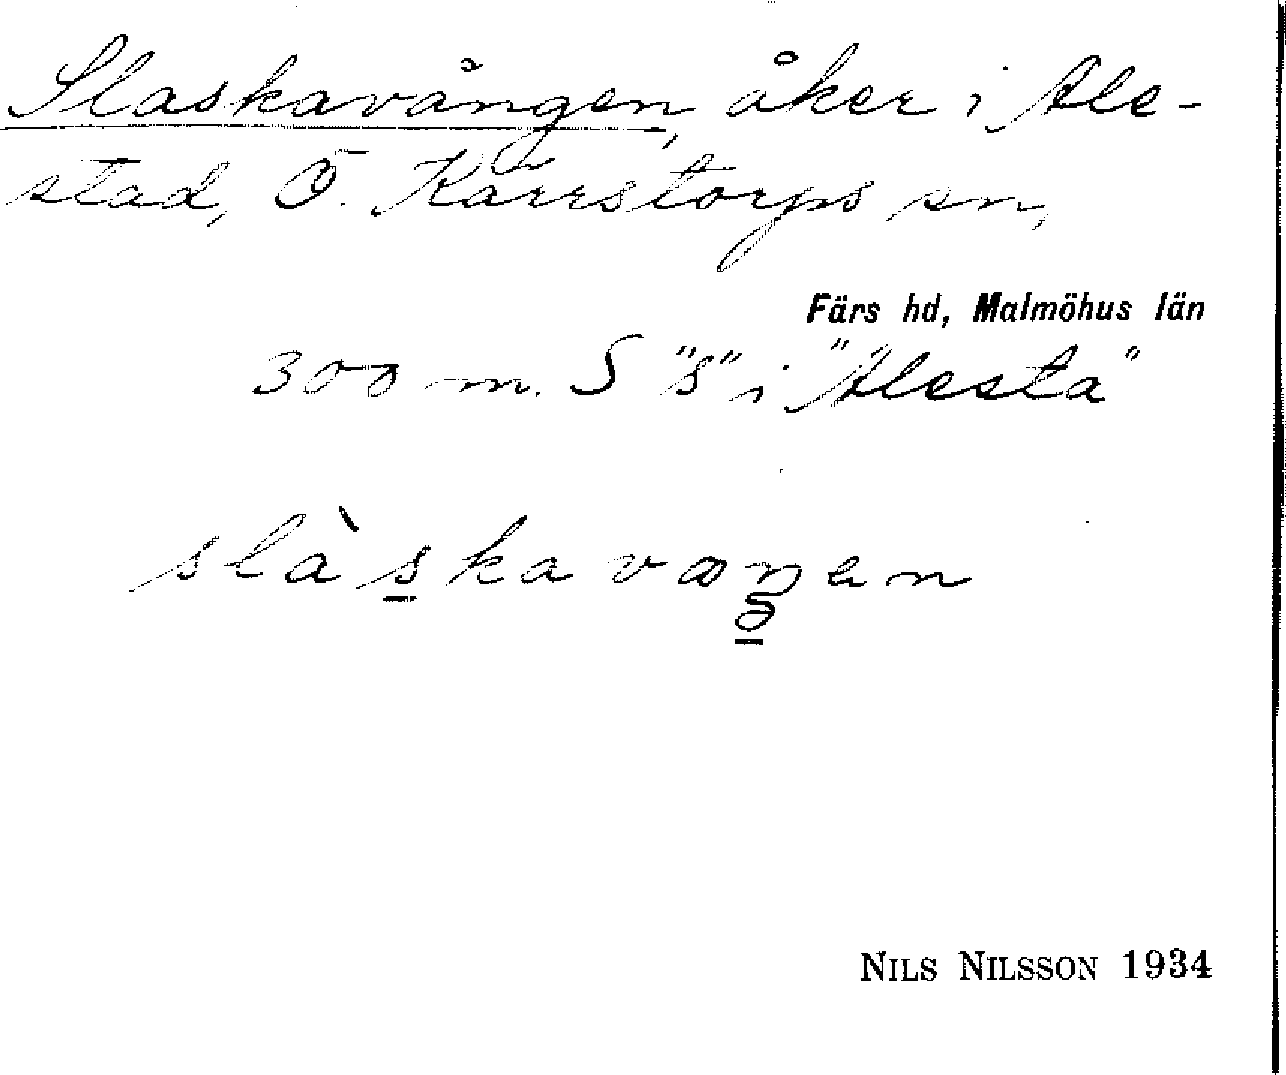 Slaskavången, åker i Ale-
stad, Ö. Kärrstorps sn,
Färs hd, Malmöhus län
300 m. S "s" i "Alesta"
NILS NILSSON 1934